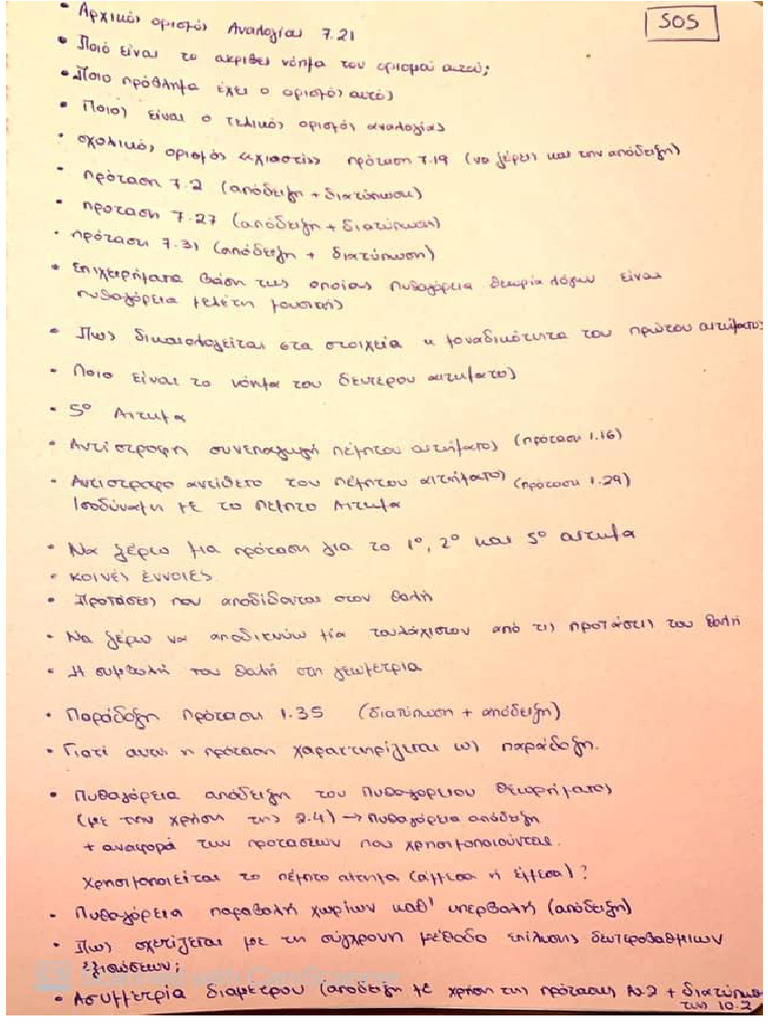 SOS
• Αρχικός ορισμός Αναλογίας 7.21
• Ποιό είναι το ακριβές νόημα του ορισμού αυτού;
• Ποιο πρόβλημα έχει ο ορισμός αυτός
• Ποιος είναι ο τελικός ορισμός αναλογίας
• σχολικός ορισμός «χιαστί» πρόταση 7.19 (να ξέρεις και την απόδειξη)
• πρόταση 7.2 (απόδειξη + διατύπωση)
• προταση 7.27 (απόδειξη + διατύπωση)
• πρόταση 7.31 (απόδειξη + διατύπωση)
• Επιχειρήματα βάση τις οποίας πυθαγόρεια θεωρία λόγων είναι
πυθαγόρεια μελέτη μουσικής
• Πως δικαιολογείται στα στοιχεία η μοναδικότητα του πρώτου αιτήματος
• Ποιο είναι το νόημα του δεύτερου αιτήματος
• 5º Αιτημα
• Αντίστροφη συνεπαγωγή πέμπτου αιτήματος (πρόταση 1.16)
• Αντιστροφο αντίθετο του πέμπτου αιτήματος (πρόταση 1.29)
Ισοδύναμη με το πέμπτο Αιτημα
• Να ξέρω μια πρόταση για το 1º, 2º και 5º αιτημα
• κοινές έννοιες
• Προτάσεις που αποδίδονται στον Θαλή
• Να ξέρω να αποδικνύω μία τουλάχιστον από τις προτάσεις του Θαλή
• Η συμβολή του Θαλή στη γεωμετρία
• Παράδοξη πρόταση 1.35 (διατύπωση + απόδειξη)
• Γιατί αυτή η πρόταση χαρακτηρίζεται ως παράδοξη.
• Πυθαγόρεια απόδειξη του Πυθαγορειου Θεωρήματος
(με την χρήση της 2.4) → πυθαγόρεια απόδειξη
+ αναφορά των προτασεων που χρησιμοποιούνται.
Χρησιμοποιείται το πέμπτο αιτημα (άμμεσα ή έμμεσα)?
• Πυθαγόρεια παραβολή χωρίων καθ' υπερβολή (απόδειξη)
• Πως σχετίζεται με τη σύγχρονη μέθοδο επίλυσης δευτεροβαθμιων
εξισώσεων;
• Ασυμμετρία διαμέτρου (απόδειξη με χρήση της πρότασης 10.2 + διατύπωση
της 10.2